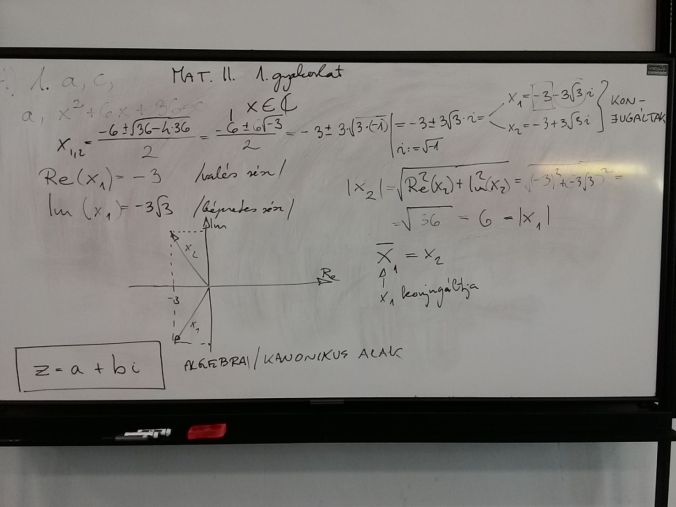 1. a, c, MAT. II. 1. gyakorlat
a, x²+6x+36=0 x∈ℂ
x₁,₂ = (-6±√(36-4·36))/2 = (-6±6√-3)/2 = -3±3·√(3·(-1)) = -3±3√3·i =
i:=√-1
x₁=-3-3√3·i
x₂=-3+3√3i
KON-
JUGÁLTAK
Re(x₁) = -3 /valós rész/
Im(x₁) = -3√3 /képzetes rész/
|x₂| = √(Re²(x₂)+Im²(x₂)) = √((-3)²+(-3√3)²) =
= √36 = 6 = |x₁|
x̄₁ = x₂
x₁ konjugáltja
Im
x₂
Re
-3
x₁
z = a + bi
ALGEBRAI/KANONIKUS ALAK